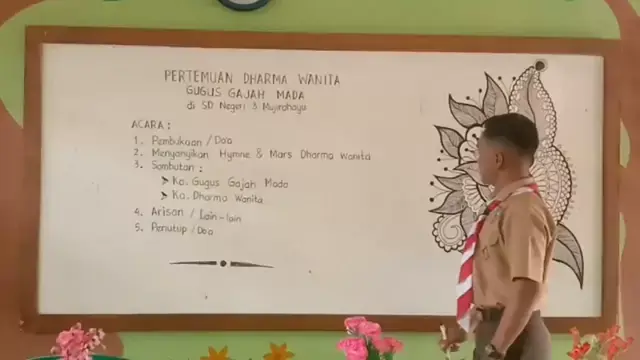 PERTEMUAN DHARMA WANITA
GUGUS GAJAH MADA
di SD Negeri 3 Mujirahayu
ACARA :
1. Pembukaan / Do'a
2. Menyanyikan Hymne & Mars Dharma Wanita
3. Sambutan :
➤ Ka. Gugus Gajah Mada
➤ Ka. Dharma Wanita
4. Arisan / Lain-lain
5. Penutup / Do'a